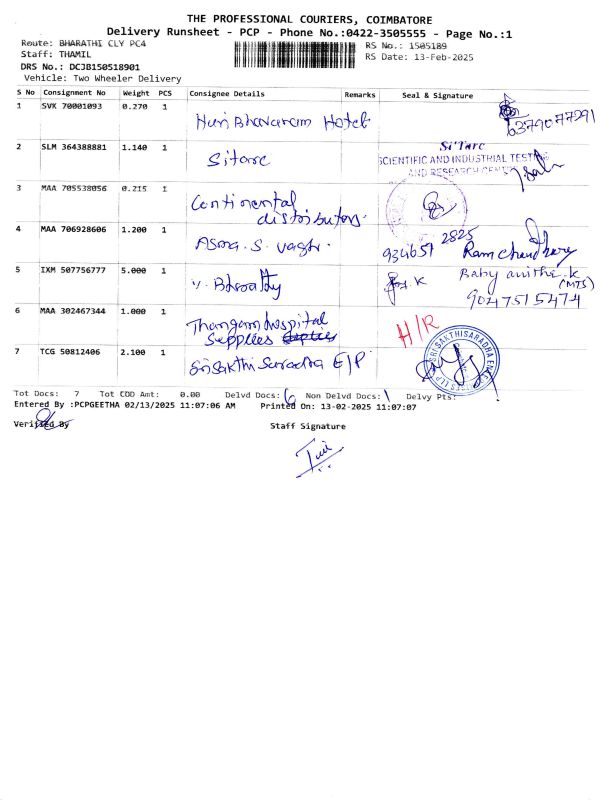 THE PROFESSIONAL COURIERS, COIMBATORE
Delivery Runsheet - PCP - Phone No.:0422-3505555 - Page No.:1
Route: BHARATHI CLY PC4
RS No.: 1505189
Staff: THAMIL
RS Date: 13-Feb-2025
DRS No.: DCJB150518901
Vehicle: Two Wheeler Delivery
S No Consignment No Weight PCS Consignee Details Remarks Seal & Signature
1 SVK 70001093 0.270 1 Hari Bhavanam Hotel 6379077291
2 SLM 364388881 1.140 1 Sitarc Si'Tarc
SCIENTIFIC AND INDUSTRIAL TESTING
AND RESEARCH CENTRE
3 MAA 705538056 0.215 1 Continental
distributors.
4 MAA 706928606 1.200 1 Asma. S. 934651 2825 Ramchandhary
5 IXM 507756777 5.000 1 Baby anitha.k
(MTS)
9047515474
6 MAA 302467344 1.000 1 Thangam hospital
Supplies H/R
7 TCG 50812406 2.100 1 Sri Sakthi Saradha E/P
Tot Docs: 7 Tot COD Amt: 0.00 Delvd Docs: 6 Non Delvd Docs: 1 Delvy Pts:
Entered By :PCPGEETHA 02/13/2025 11:07:06 AM Printed On: 13-02-2025 11:07:07
Verified By Staff Signature